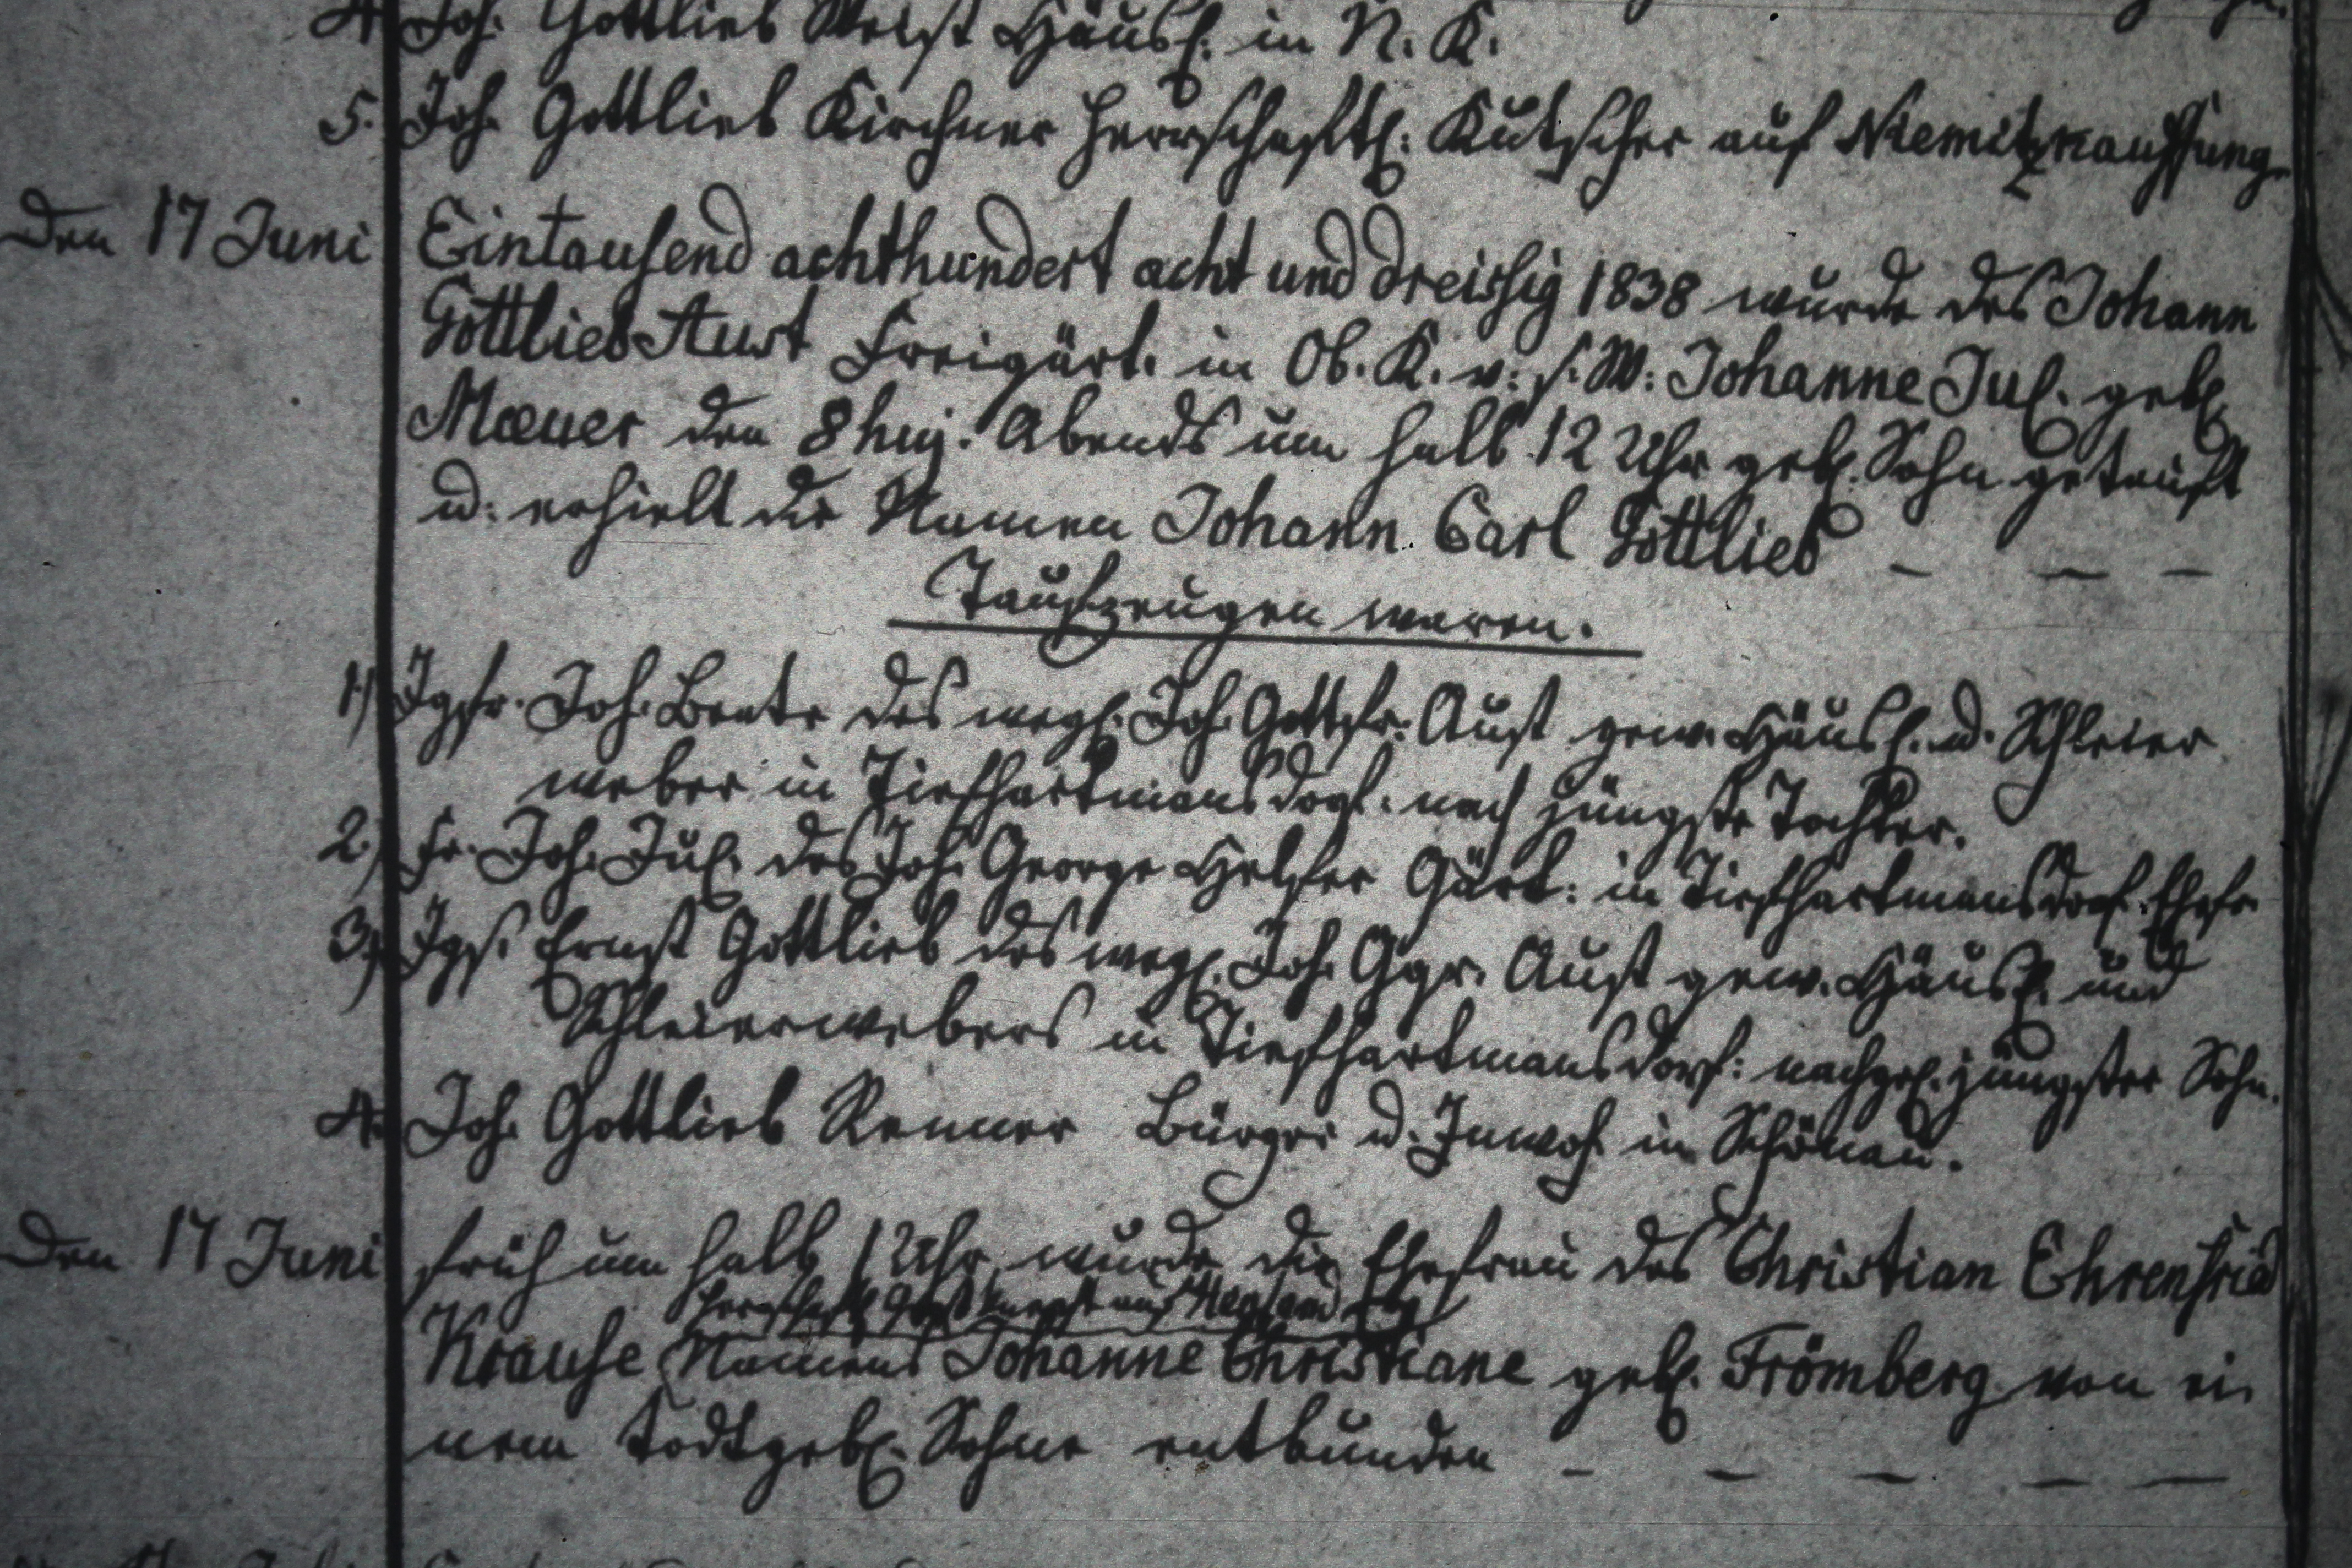 4. Joh. Gottlieb Weist Häusl. in N. K.
5. Joh. Gottlieb Kirchner herrschaftl: Kutscher auf Niemitzkauffung.
Den 17 Juni Eintausend achthundert acht und dreissig 1838 wurde des Johann
Gottlieb Aust Freigärt. in Ob. K. v: s. W: Johanne Jul. gebl.
Meuer den 8 huj. Abends um halb 12 Uhr gebl. Sohn getauft
u: erhielt die Namen Johann Carl Gottlieb – – –
Taufzeugen waren.
1) Jgfr. Joh. Beate des wegl. Joh. Gottfr. Aust gew. Häusl. u. Schleier
weber in Tiefhartmansdorf. nach jüngste Tochter.
2) Fr. Joh. Jul. des Joh. George Gärt: in Tiefhartmansdorf. Ehefr.
3) Jgs. Ernst Gottlieb des wegl. Joh. Ggr. Aust gew. Häusl. und
Schleierwebers in Tiefhartmansdorf: nachgel. jüngster Sohn.
4. Joh. Gottlieb Renner Bürger u. Inwoh in Schönau.
Den 17 Juni früh um halb 1 Uhr wurde die Ehefrau des Christian Ehrenfried
herrschaftl. auf
Krause Namens Johanne Christiane gebl. Frömberg von ei
nem todtgebl. Sohne entbunden – – – – –